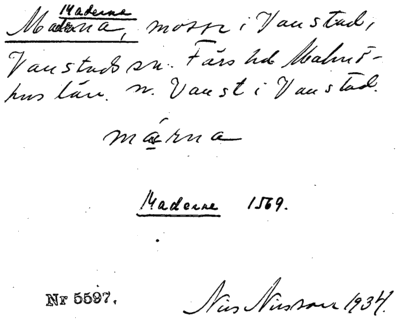 Maderne
Maderna, mosse i Vanstad,
Vanstads sn. Färs hd Malmö-
hus län. n. Vanst i Vanstad.
märna
Maderne 1569.
Nr 5597.
Nils Nilsson 1934.